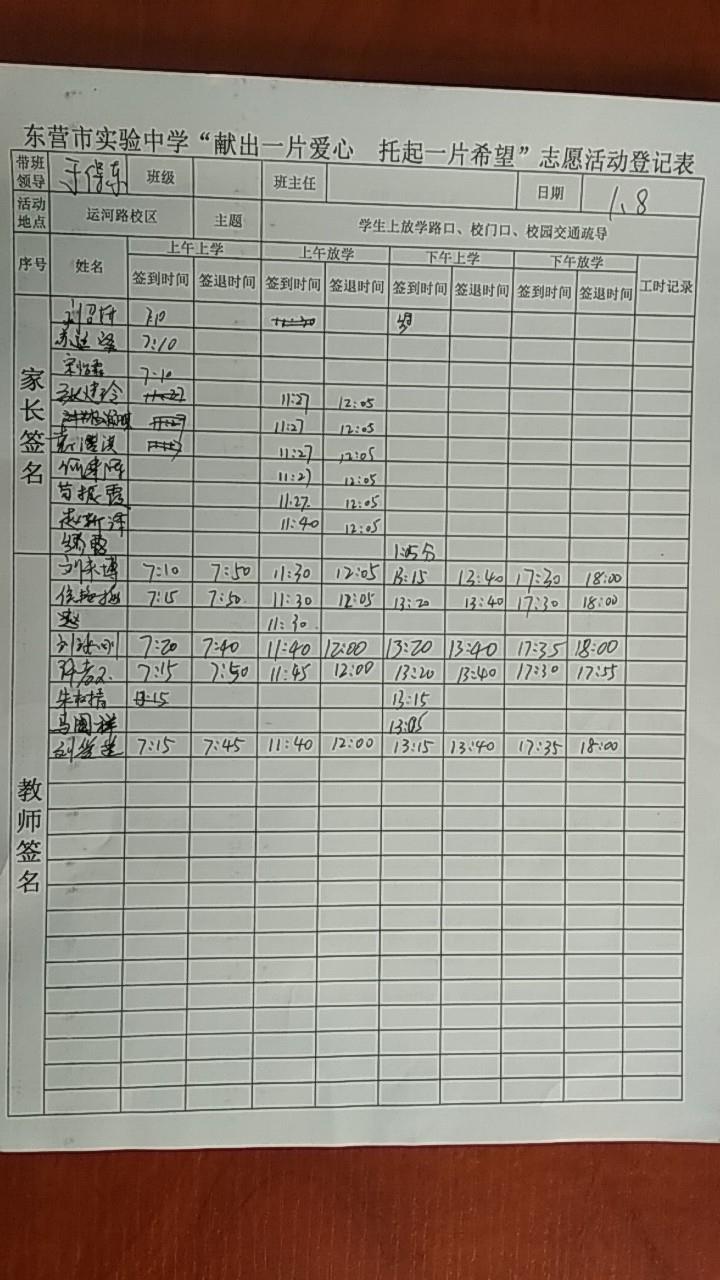 东营市实验中学“献出一片爱心 托起一片希望”志愿活动登记表
带班领导 班级 班主任 日期 1.8
活动地点 运河路校区 主题 学生上放学路口、校门口、校园交通疏导
序号 姓名 上午上学 上午放学 下午上学 下午放学 工时记录
签到时间 签退时间 签到时间 签退时间 签到时间 签退时间 签到时间 签退时间
家长签名
7:10
7:10
7:10
11:27 12:05
11:27 12:05
11:27 12:05
11:27 12:05
苟振霞 11:27 12:05
赵新泽 11:40 12:05
1:05分
教师签名
7:10 7:50 11:30 12:05 13:15 13:40 17:30 18:00
7:15 7:50 11:30 12:05 13:20 13:40 17:30 18:00
赵 11:30
7:20 7:40 11:40 12:00 13:20 13:40 17:35 18:00
7:15 7:50 11:45 12:00 13:20 13:40 17:30 17:55
13:15
马国祥 13:05
7:15 7:45 11:40 12:00 13:15 13:40 17:35 18:00